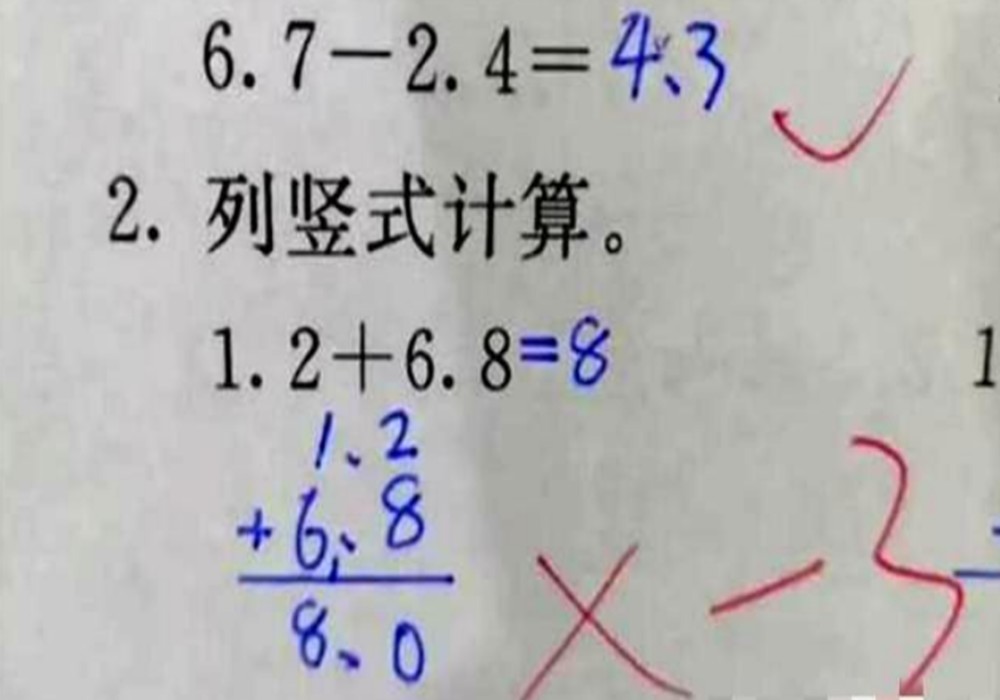 6.7-2.4=4.3
2. 列竖式计算。
1.2+6.8=8
1
1.2
+6.8
8.0
×-3